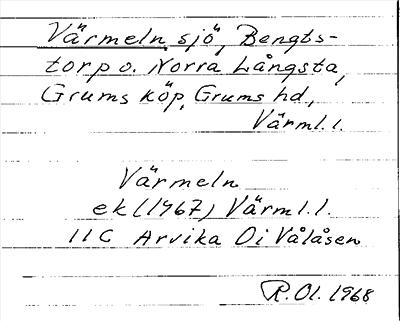 Värmeln, sjö, Bengts-
torp o. Norra Långsta,
Grums köp, Grums hd,
Värml. l.
Värmeln
ek (1967) Värml. l.
11C Arvika Oi Vålåsen
R.Ol. 1968